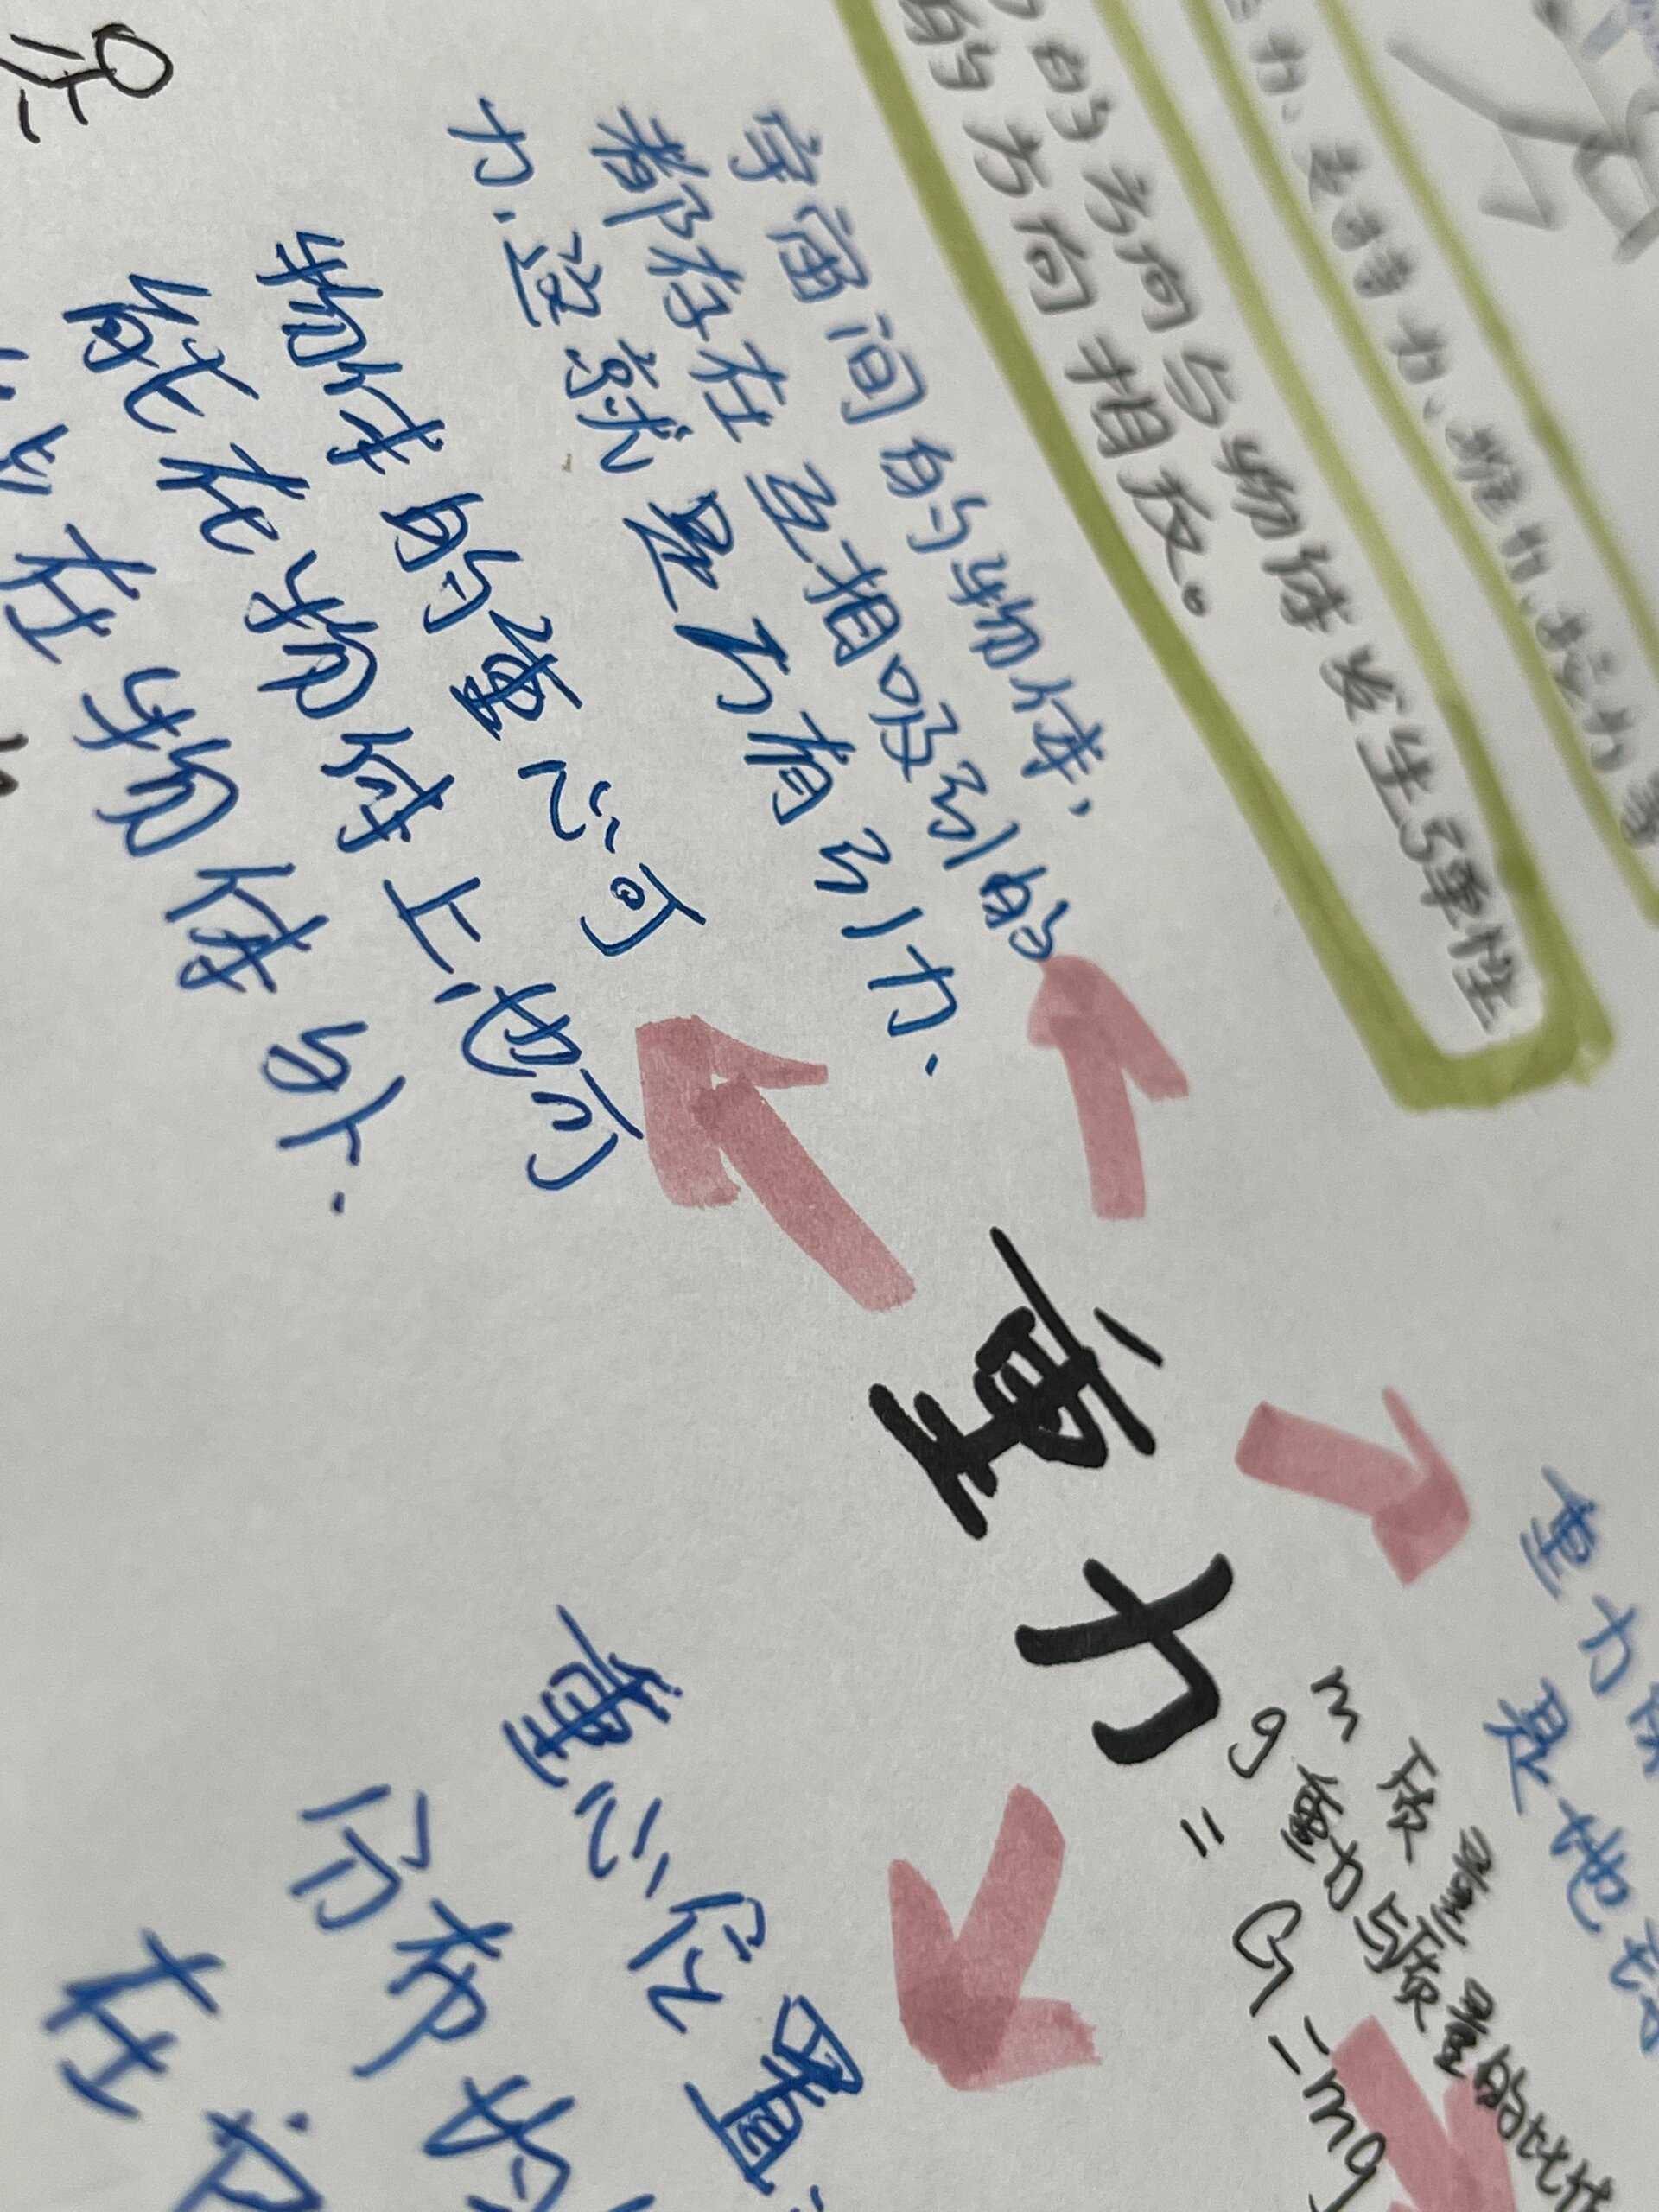 力、支持力、推力、拉力等
的方向与物体发生弹性
的方向相反。
宇宙间的物体，
都存在互相吸引的
力.这就是万有引力.
物体的重心可
能在物体上也可
在物体外.
重力
m 质量
g 重力与质量的比
= G=mg
重力
是地球
重心位置
分布
在